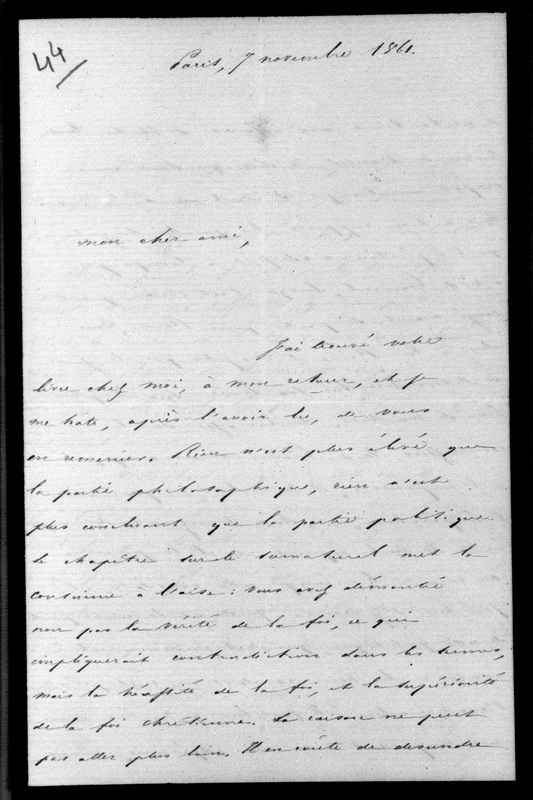 44
Paris, 7 novembre 1861.
mon cher ami,
J'ai trouvé votre
livre chez moi, à mon retour, et je
me hate, après l'avoir lu, de vous
en remercier. Rien n'est plus élevé que
la partie philosophique, rien n'est
plus concluant que la partie politique
le chapitre sur le surnaturel met la
conscience à l'aise : vous avez démontré
non pas la vérité de la foi, ce qui
impliquerait contradiction dans les termes,
mais la nécessité de la foi, et la supériorité
de la foi chrétienne. La raison ne peut
pas aller plus loin. Il en coûte de descendre